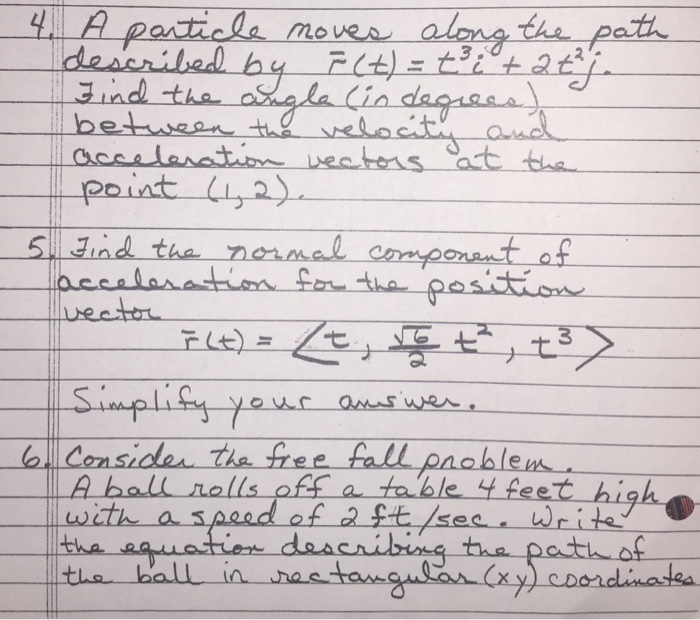 4. A particle moves along the path
described by r̄(t) = t³i + 2t²j.
Find the angle (in degrees)
between the velocity and
acceleration vectors at the
point (1, 2).
5. Find the normal component of
acceleration for the position
vector
r̄(t) = ⟨t, √6/2 t², t³⟩
Simplify your answer.
6. Consider the free fall problem.
A ball rolls off a table 4 feet high
with a speed of 2 ft/sec. Write
the equation describing the path of
the ball in rectangular (xy) coordinates